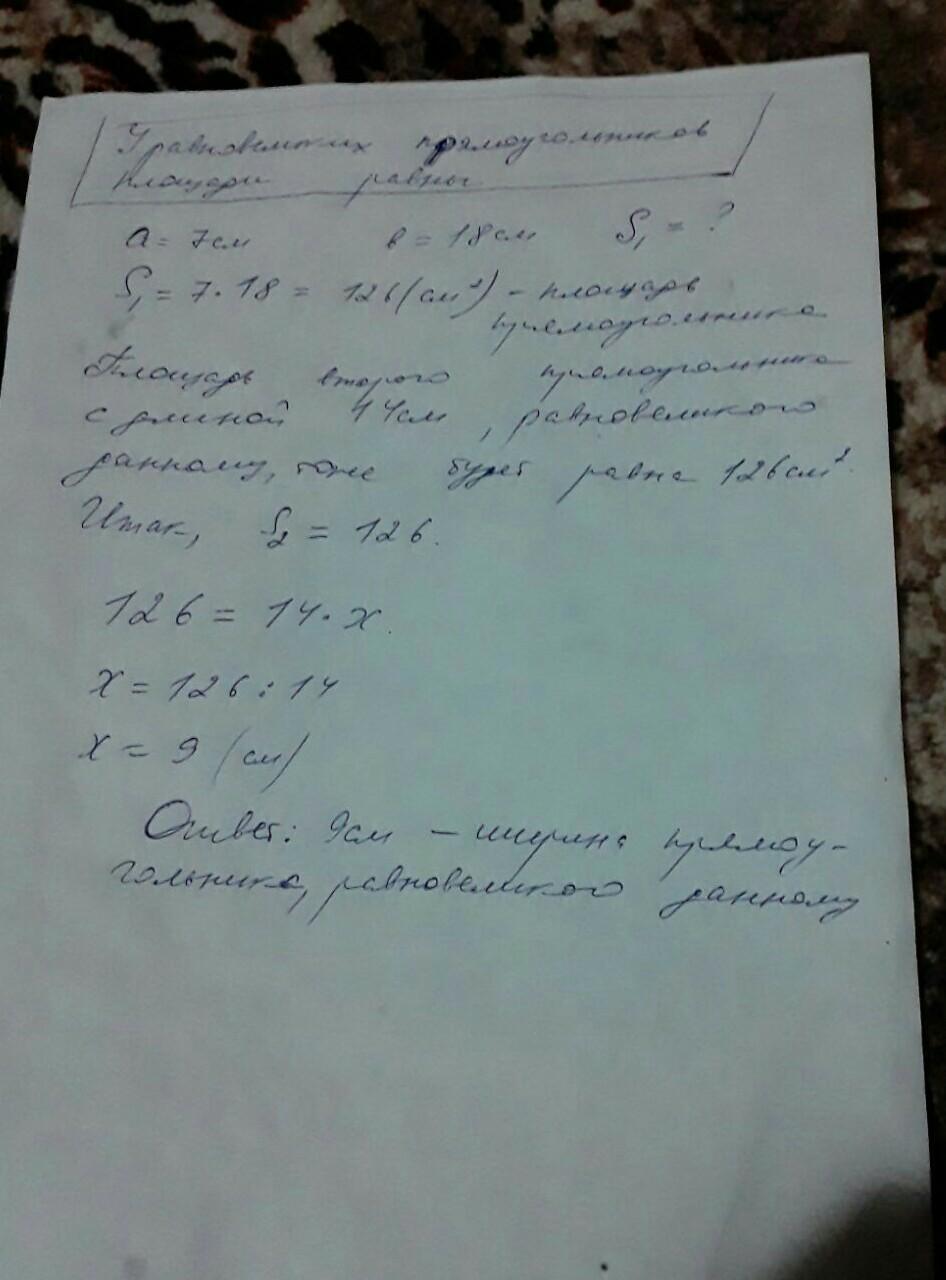 У равновеликих прямоугольников
площади равны
a = 7см в = 18см S₁ = ?
S₁ = 7·18 = 126(см²) – площадь
прямоугольника
Площадь второго прямоугольника
с длиной 14см, равновеликого
данному, тоже будет равна 126см².
Итак, S₂ = 126.
126 = 14·x.
x = 126:14
x = 9 (см)
Ответ: 9см – ширина прямоу-
гольника, равновеликого данному